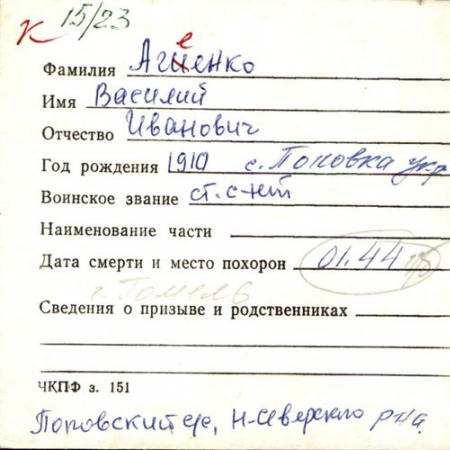 К 15/23
е
Фамилия Агиенко
Имя Василий
Отчество Иванович
Год рождения 1910 с. Поповка укр
Воинское звание ст. с-нт
Наименование части
Дата смерти и место похорон 01.44
г. Гомель
Сведения о призыве и родственниках
ЧКПФ з. 151
Поповский с/с, Н-Северского р-на.